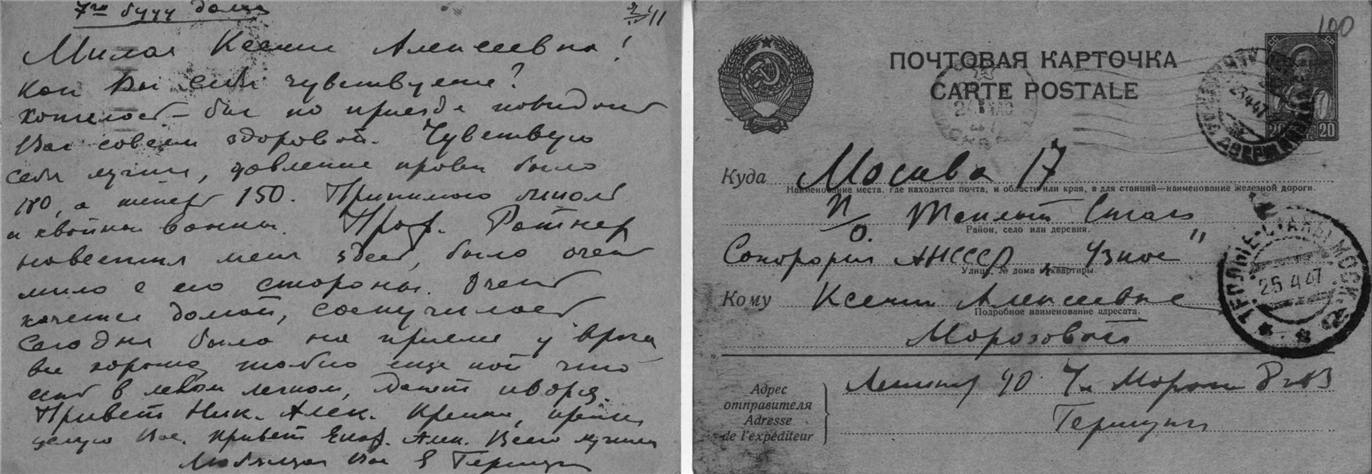 7го буду дома
Милая Ксения Алексеевна!
Как Вы себя чувствуете?
Хотелось бы по приезде повидать
Вас совсем здоровой. Чувствую
себя лучше, давление крови было
180, а теперь 150. Принимаю
и хвойные ванны. Проф. Ратнер
навестил меня здесь, было очень
мило с его стороны. Очень
хочется домой, соскучилась
Сегодня была на приеме у врача
все хорошо, только еще кой что
есть в левом легком,
Привет Ник. Алек. Крепко, крепко
целую Вас. Привет Алек. Всего лучшего
Любящая Вас Е
100
ПОЧТОВАЯ КАРТОЧКА
CARTE POSTALE
20 20
23 4 47
Куда Москва 17
Наименование места, где находится почта, и области или края, а для станций—наименование железной дороги.
п/о. Теплый Стан
Район, село или деревня.
Санатория АНСССР „Узкое"
Улица, № дома и квартиры.
ТЕПЛЫЕ-СТАНЫ МОСК.
25 4 47
Кому Ксении Алексеевне
Подробное наименование адресата.
Морозовой
Адрес
отправителя
Adresse
de l'expéditeur